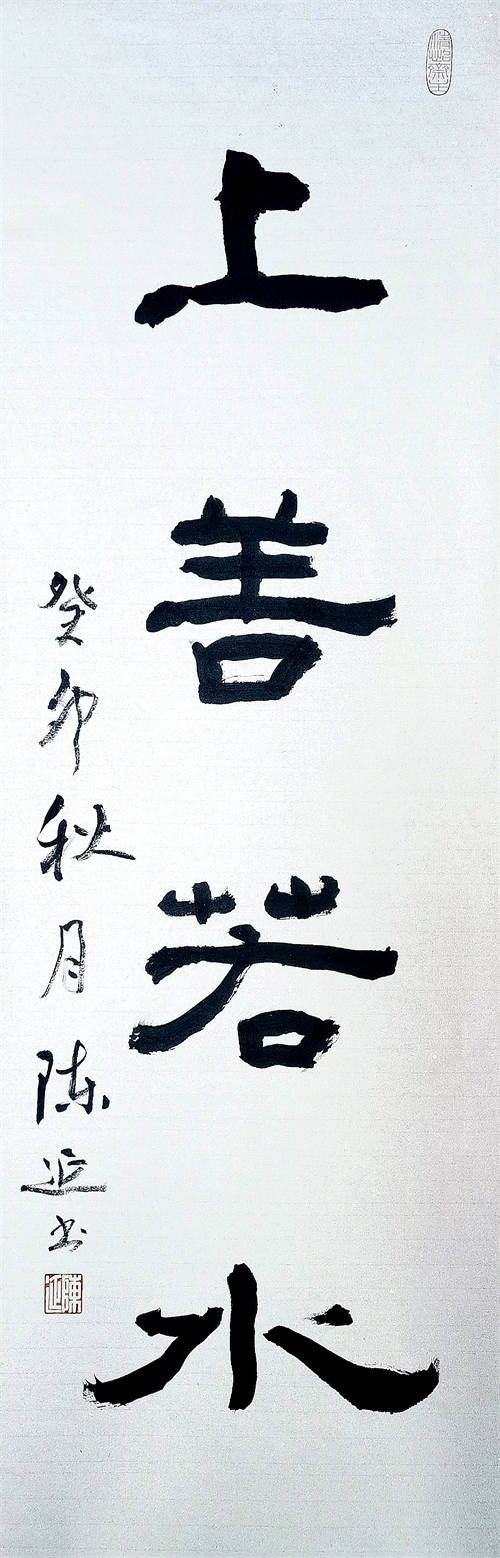 上善若水
癸卯秋月陈延书